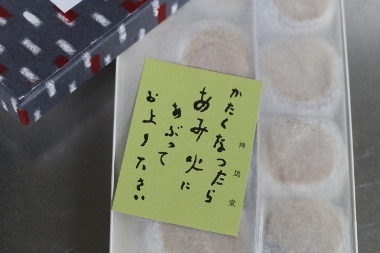 かたくなったら
あみ火に
あぶって
およりください